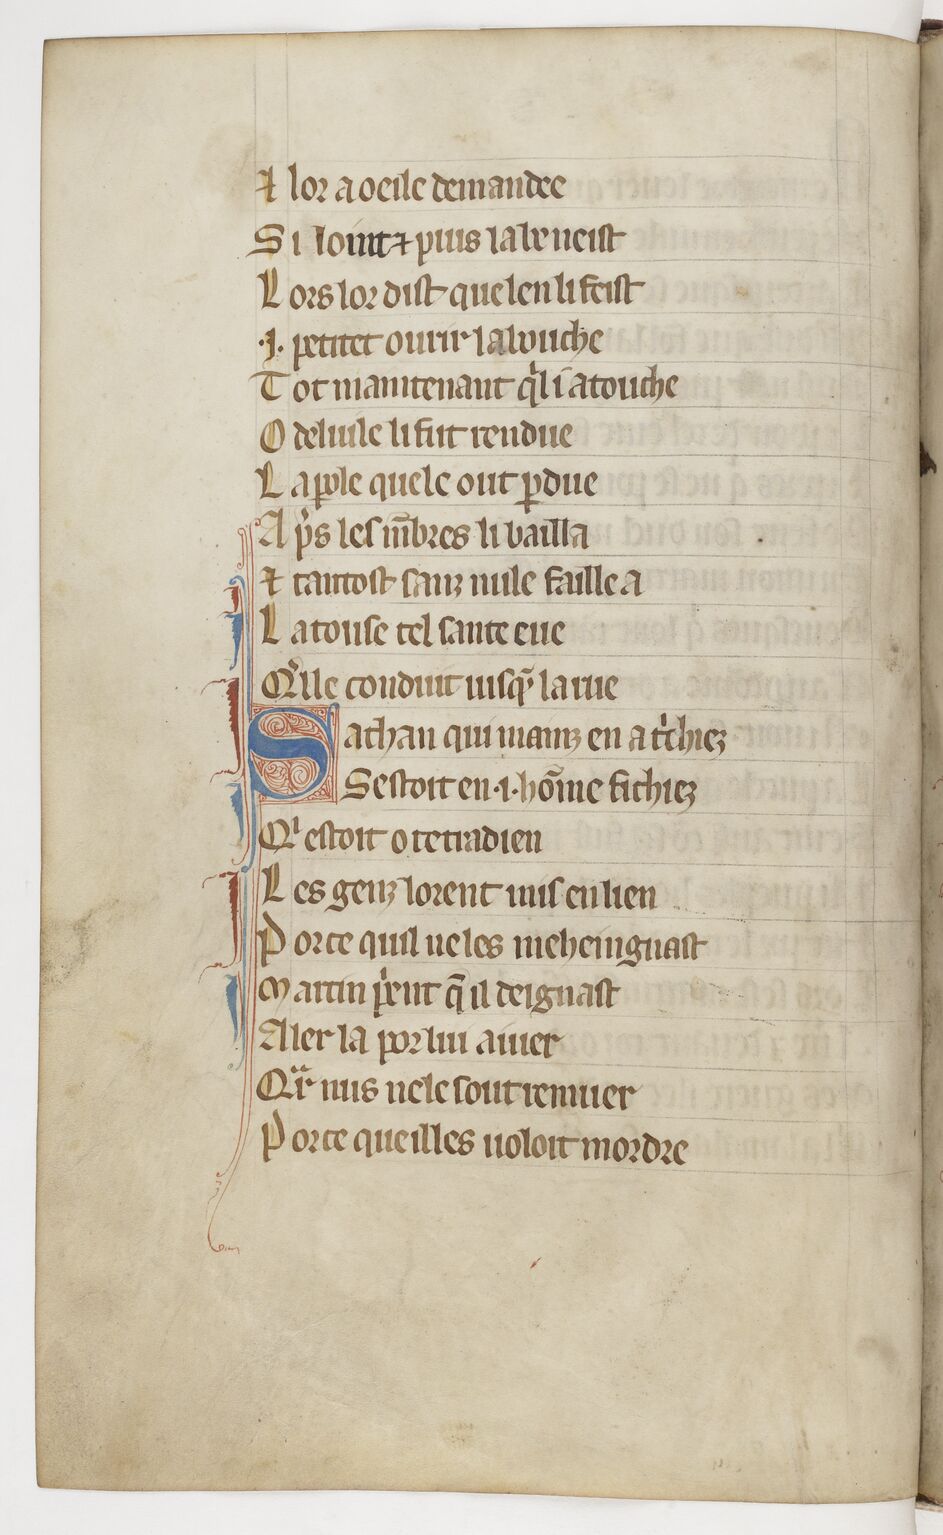 ⁊ lor a oeile demandee
Si loint ⁊ puis la beneist
Lors lor dist que len li feist
.j. petitet ourir la bouche
Tot maintenant q̉l i atouche
O deluile li fut rendue
La ꝑole quele out ꝑdue
Ap̃s les m̃bres li bailla
⁊ tantost sanz nule faille a
La touse tel sante eue
Q̉lle conduit iusq̃ la rue
Sathan qui mainz en a t̉chiez
Sestoit en .i. hõme fichiez
Qͥ estoit o tetradien
Les genz lorent mis en lien
Por ce quil ne les meheingnast
Martin p̉ent q̃ il deignast
Aler la por lui aiuer
Qᷓr nus ne le sout remuer
Por ce que illes uoloit mordre